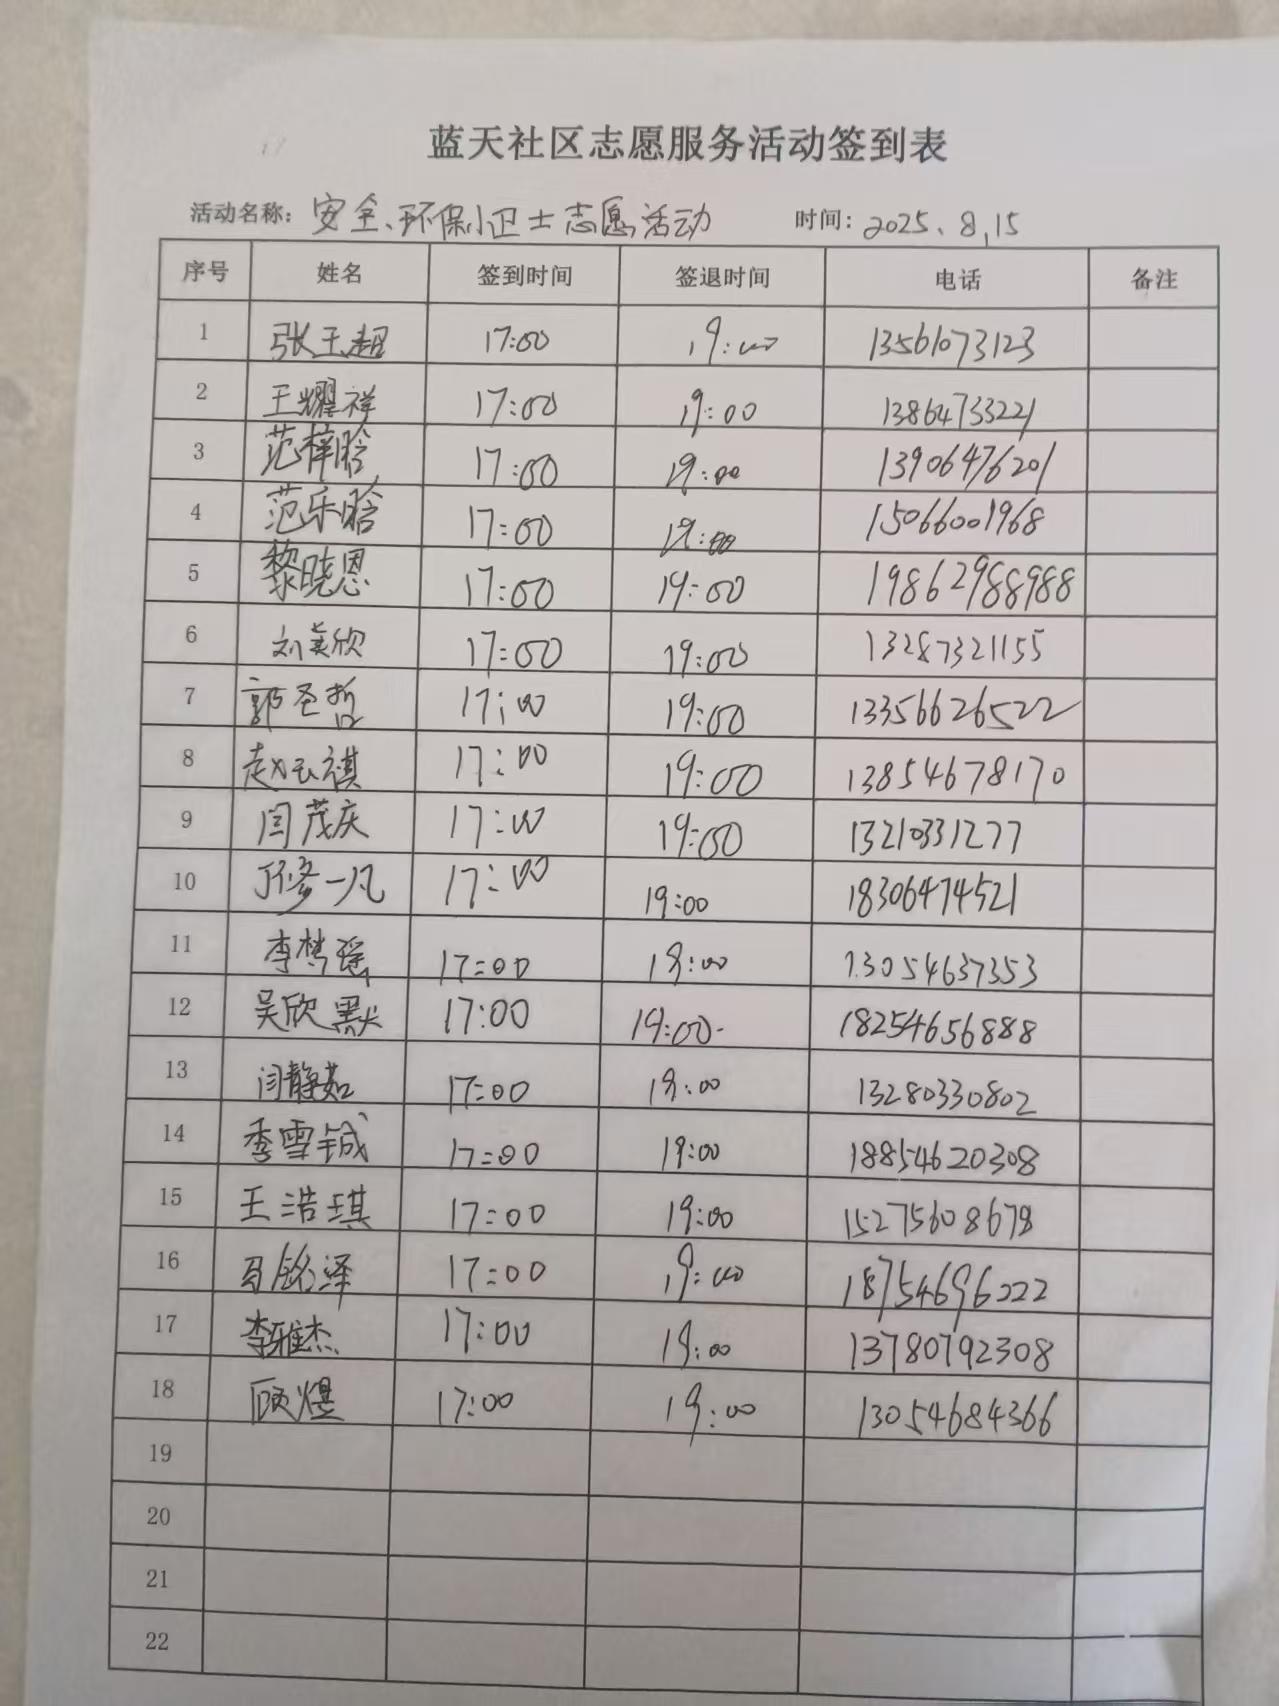 蓝天社区志愿服务活动签到表
活动名称: 安全、环保小卫士志愿活动 时间: 2025.8.15
序号 姓名 签到时间 签退时间 电话 备注
1 张玉超 17:00 19:00 13561073123
2 王耀祥 17:00 19:00 13864733221
3 范梓晗 17:00 19:00 13906476201
4 范乐晗 17:00 19:00 15066001968
5 黎晓恩 17:00 19:00 19862988988
6 刘美欣 17:00 19:00 13287321155
7 郭圣哲 17:00 19:00 13356626522
8 赵云祺 17:00 19:00 13854678170
9 闫茂庆 17:00 19:00 13210331277
10 修一凡 17:00 19:00 18306474521
11 李梦瑶 17:00 19:00 13054637353
12 吴欣默 17:00 19:00 18254656888
13 闫静茹 17:00 19:00 13280330802
14 季雪铖 17:00 19:00 18854620308
15 王浩琪 17:00 19:00 15275608678
16 马铭泽 17:00 19:00 18754696222
17 李雅杰 17:00 19:00 13780792308
18 顾煜 17:00 19:00 13054684366
19
20
21
22